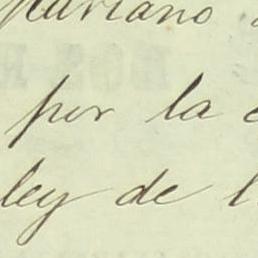 Mariano
por la
ley de